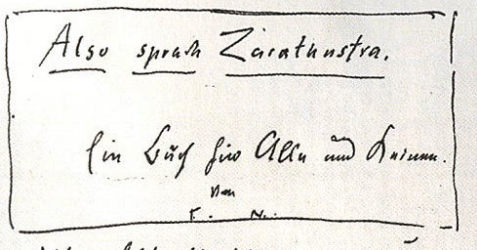 Also sprach Zarathustra.
Ein Buch für Alle und Keinen.
Von
F. N.